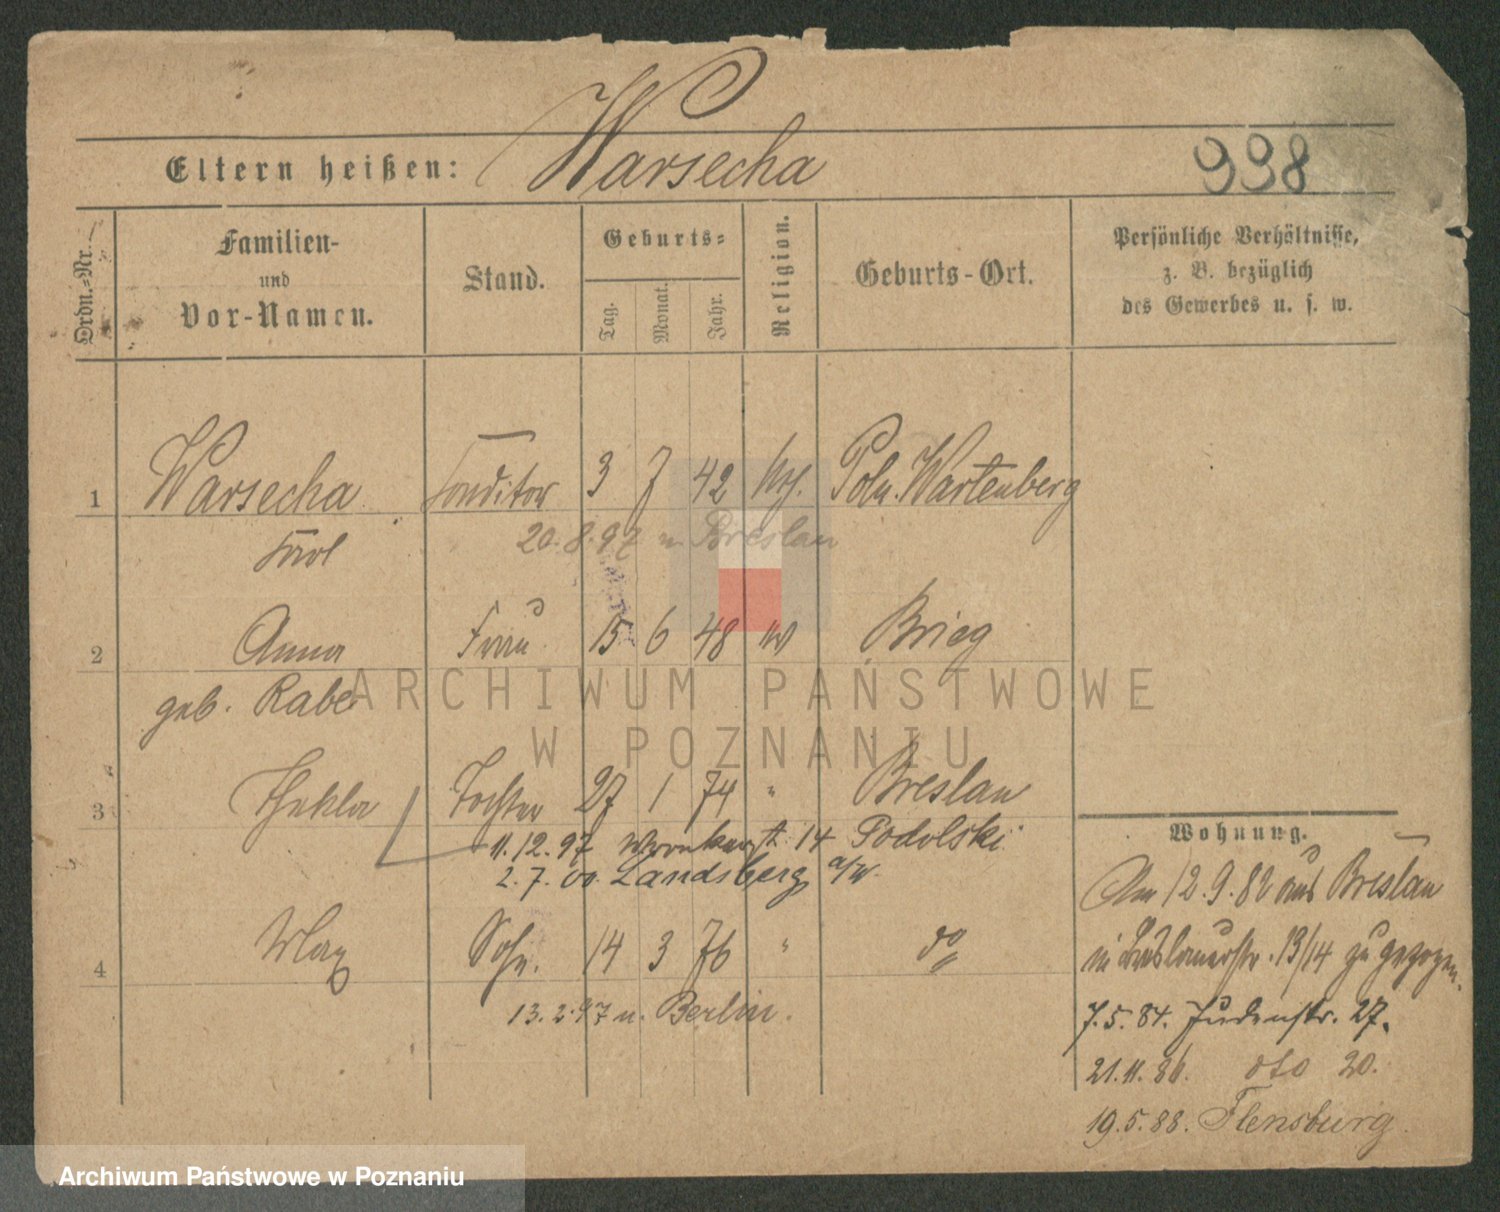 Warsecha
Eltern heißen:
998
Ordn.-Nr.
Familien-
und
Vor-Namen.
Stand.
Geburts-
Tag.
Monat.
Jahr.
Religion.
Geburts-Ort.
Persönliche Verhältnisse,
z. B. bezüglich
des Gewerbes u. s. w.
1 Warsecha Conditor 3 7 42 Poln. Wartenberg
20.8.97 n. Breslau
Karl
2 Anna Frau 15 6 48 Brieg
geb. Rabe
ARCHIWUM PAŃSTWOWE
W POZNANIU
3 Thekla Tochter 27 1 74 " Breslau
11.12.97 14 Podolski
2.7.00. Landsberg a/W.
4 Max Sohn. 14 3 76 " do
13.2.97 n. Berlin.
Wohnung.
Am 12.9.82 aus Breslau
in Breslauerstr. 13/14 zugezogen.
7.5.84. Judenstr. 27.
21.11.86. dto 20.
19.5.88. Flensburg.
Archiwum Państwowe w Poznaniu